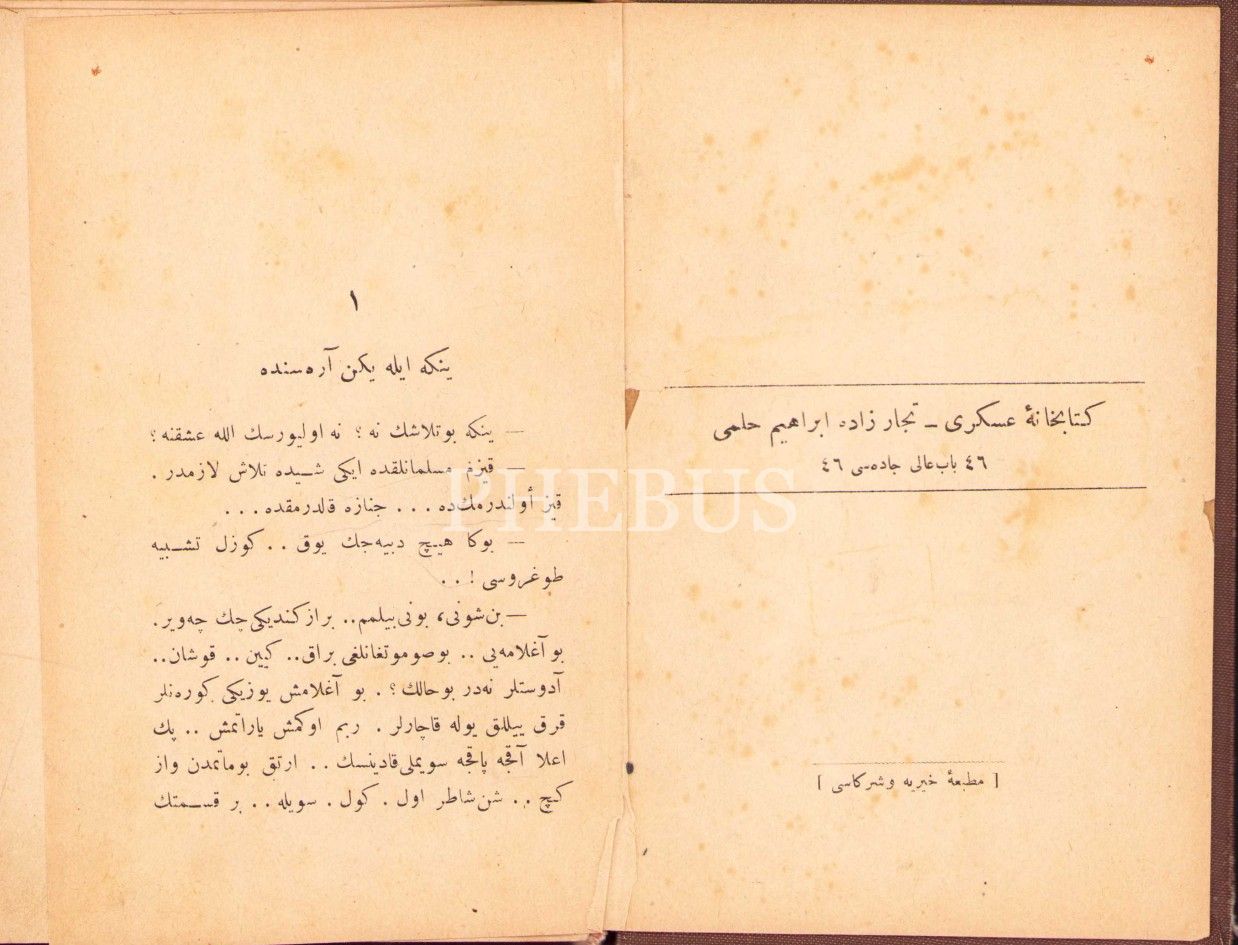 كتابخانهٔ عسكرى ــ تجار زاده ابراهيم حلمى
٤٦ باب عالى جاده‌سى ٤٦
[ مطبعهٔ خيريه و شركاسى ]
١
ينكه ايله يكن آره‌سنده
— ينكه بوتلاشك نه؟ نه اوليورسك الله عشقنه؟
— قيزم مسلمانلقده ايكى شـيده تلاش لازمدر .
قيز أولندرمك‌ده ... جنازه قالدرمقده ...
— بوكا هيـچ دييه‌جك يوق .. كوزل تشـبيه
طوغروسى ! ..
— بن شونى، بونى بيلمم.. براز كنديكى چك چه‌وير.
بو آغلامه‌يى .. بوصوموتغانلغى براق.. كيين .. قوشان..
آدوستلر نه‌در بوحالك ؟ . بو آغلامش يوزيكى كوره‌نلر
قرق ييللق يوله قاچارلر . ربم اوكمش ياراتمش .. پك
اعلا آقجه پاقجه سويملى قادينسك .. ارتق بوماتمدن واز
كچ .. شن شاطر اول . كول . سويله .. بر قسـمتك
PHEBUS